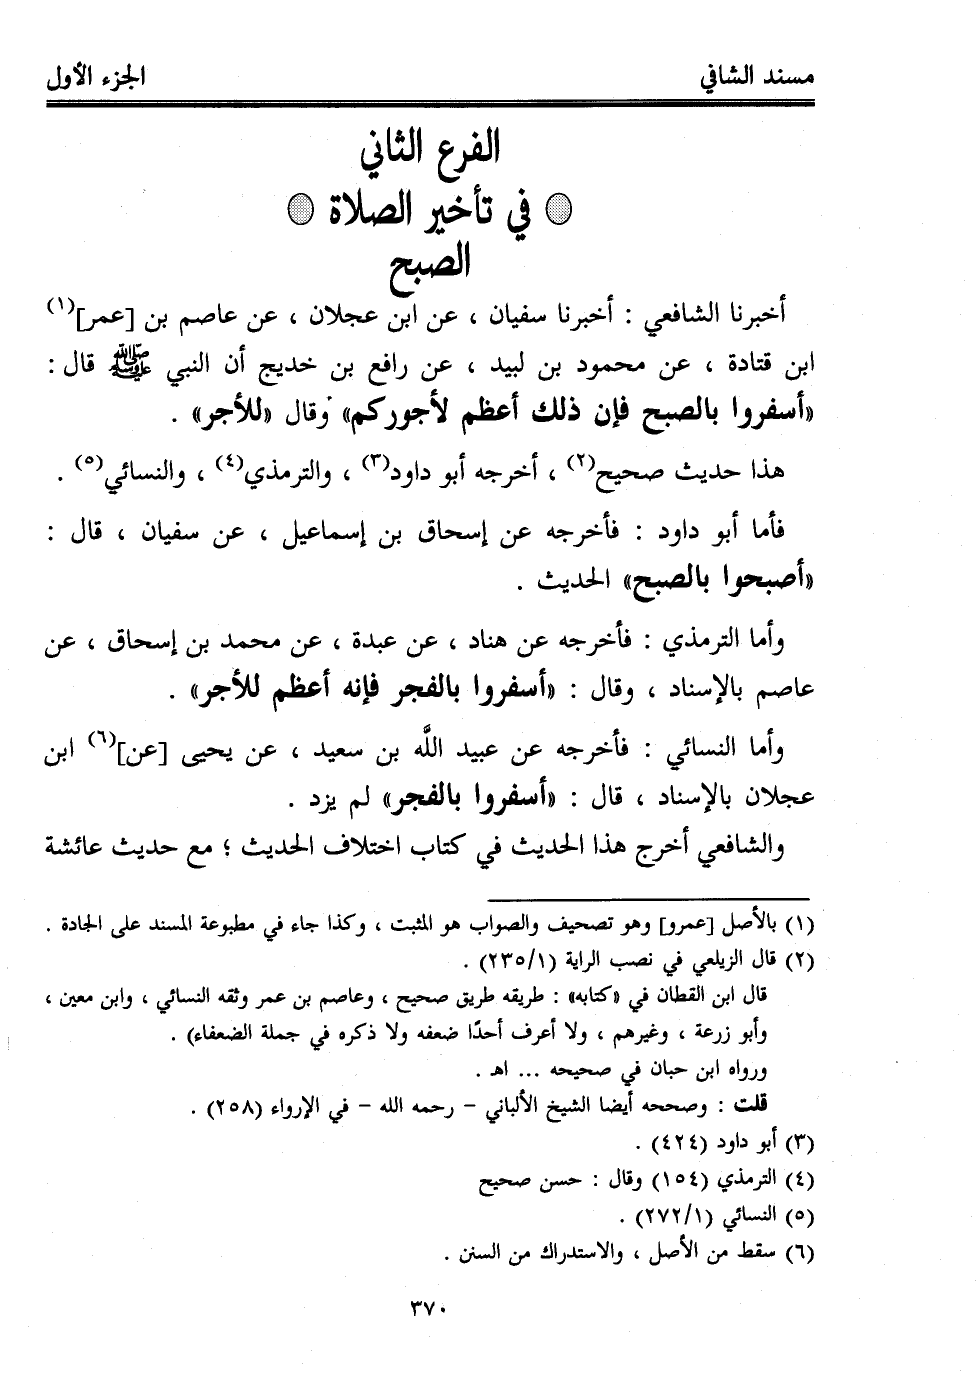 مسند الشافي
الجزء الأول
الفرع الثاني
في تأخير الصلاة
الصبح
أخبرنا الشافعي : أخبرنا سفيان ، عن ابن عجلان ، عن عاصم بن [عمر](١)
ابن قتادة ، عن محمود بن لبيد ، عن رافع بن خديج أن النبي ﷺ قال :
«أسفروا بالصبح فإن ذلك أعظم لأجوركم» وقال «للأجر» .
هذا حديث صحيح(٢) ، أخرجه أبو داود(٣) ، والترمذي(٤) ، والنسائي(٥) .
فأما أبو داود : فأخرجه عن إسحاق بن إسماعيل ، عن سفيان ، قال :
«أصبحوا بالصبح» الحديث .
وأما الترمذي : فأخرجه عن هناد ، عن عبدة ، عن محمد بن إسحاق ، عن
عاصم بالإسناد ، وقال : «أسفروا بالفجر فإنه أعظم للأجر» .
وأما النسائي : فأخرجه عن عبيد اللَّه بن سعيد ، عن يحيى [عن](٦) ابن
عجلان بالإسناد ، قال : «أسفروا بالفجر» لم يزد .
والشافعي أخرج هذا الحديث في كتاب اختلاف الحديث ؛ مع حديث عائشة
(١) بالأصل [عمرو] وهو تصحيف والصواب هو المثبت ، وكذا جاء في مطبوعة المسند على الجادة .
(٢) قال الزيلعي في نصب الراية (٢٣٥/١) .
قال ابن القطان في «كتابه» : طريقه طريق صحيح ، وعاصم بن عمر وثقه النسائي ، وابن معين ،
وأبو زرعة ، وغيرهم ، ولا أعرف أحدًا ضعفه ولا ذكره في جملة الضعفاء) .
ورواه ابن حبان في صحيحه ... اهـ .
قلت : وصححه أيضا الشيخ الألباني - رحمه الله - في الإرواء (٢٥٨) .
(٣) أبو داود (٤٢٤) .
(٤) الترمذي (١٥٤) وقال : حسن صحيح
(٥) النسائي (٢٧٢/١) .
(٦) سقط من الأصل ، والاستدراك من السنن .
٣٧٠